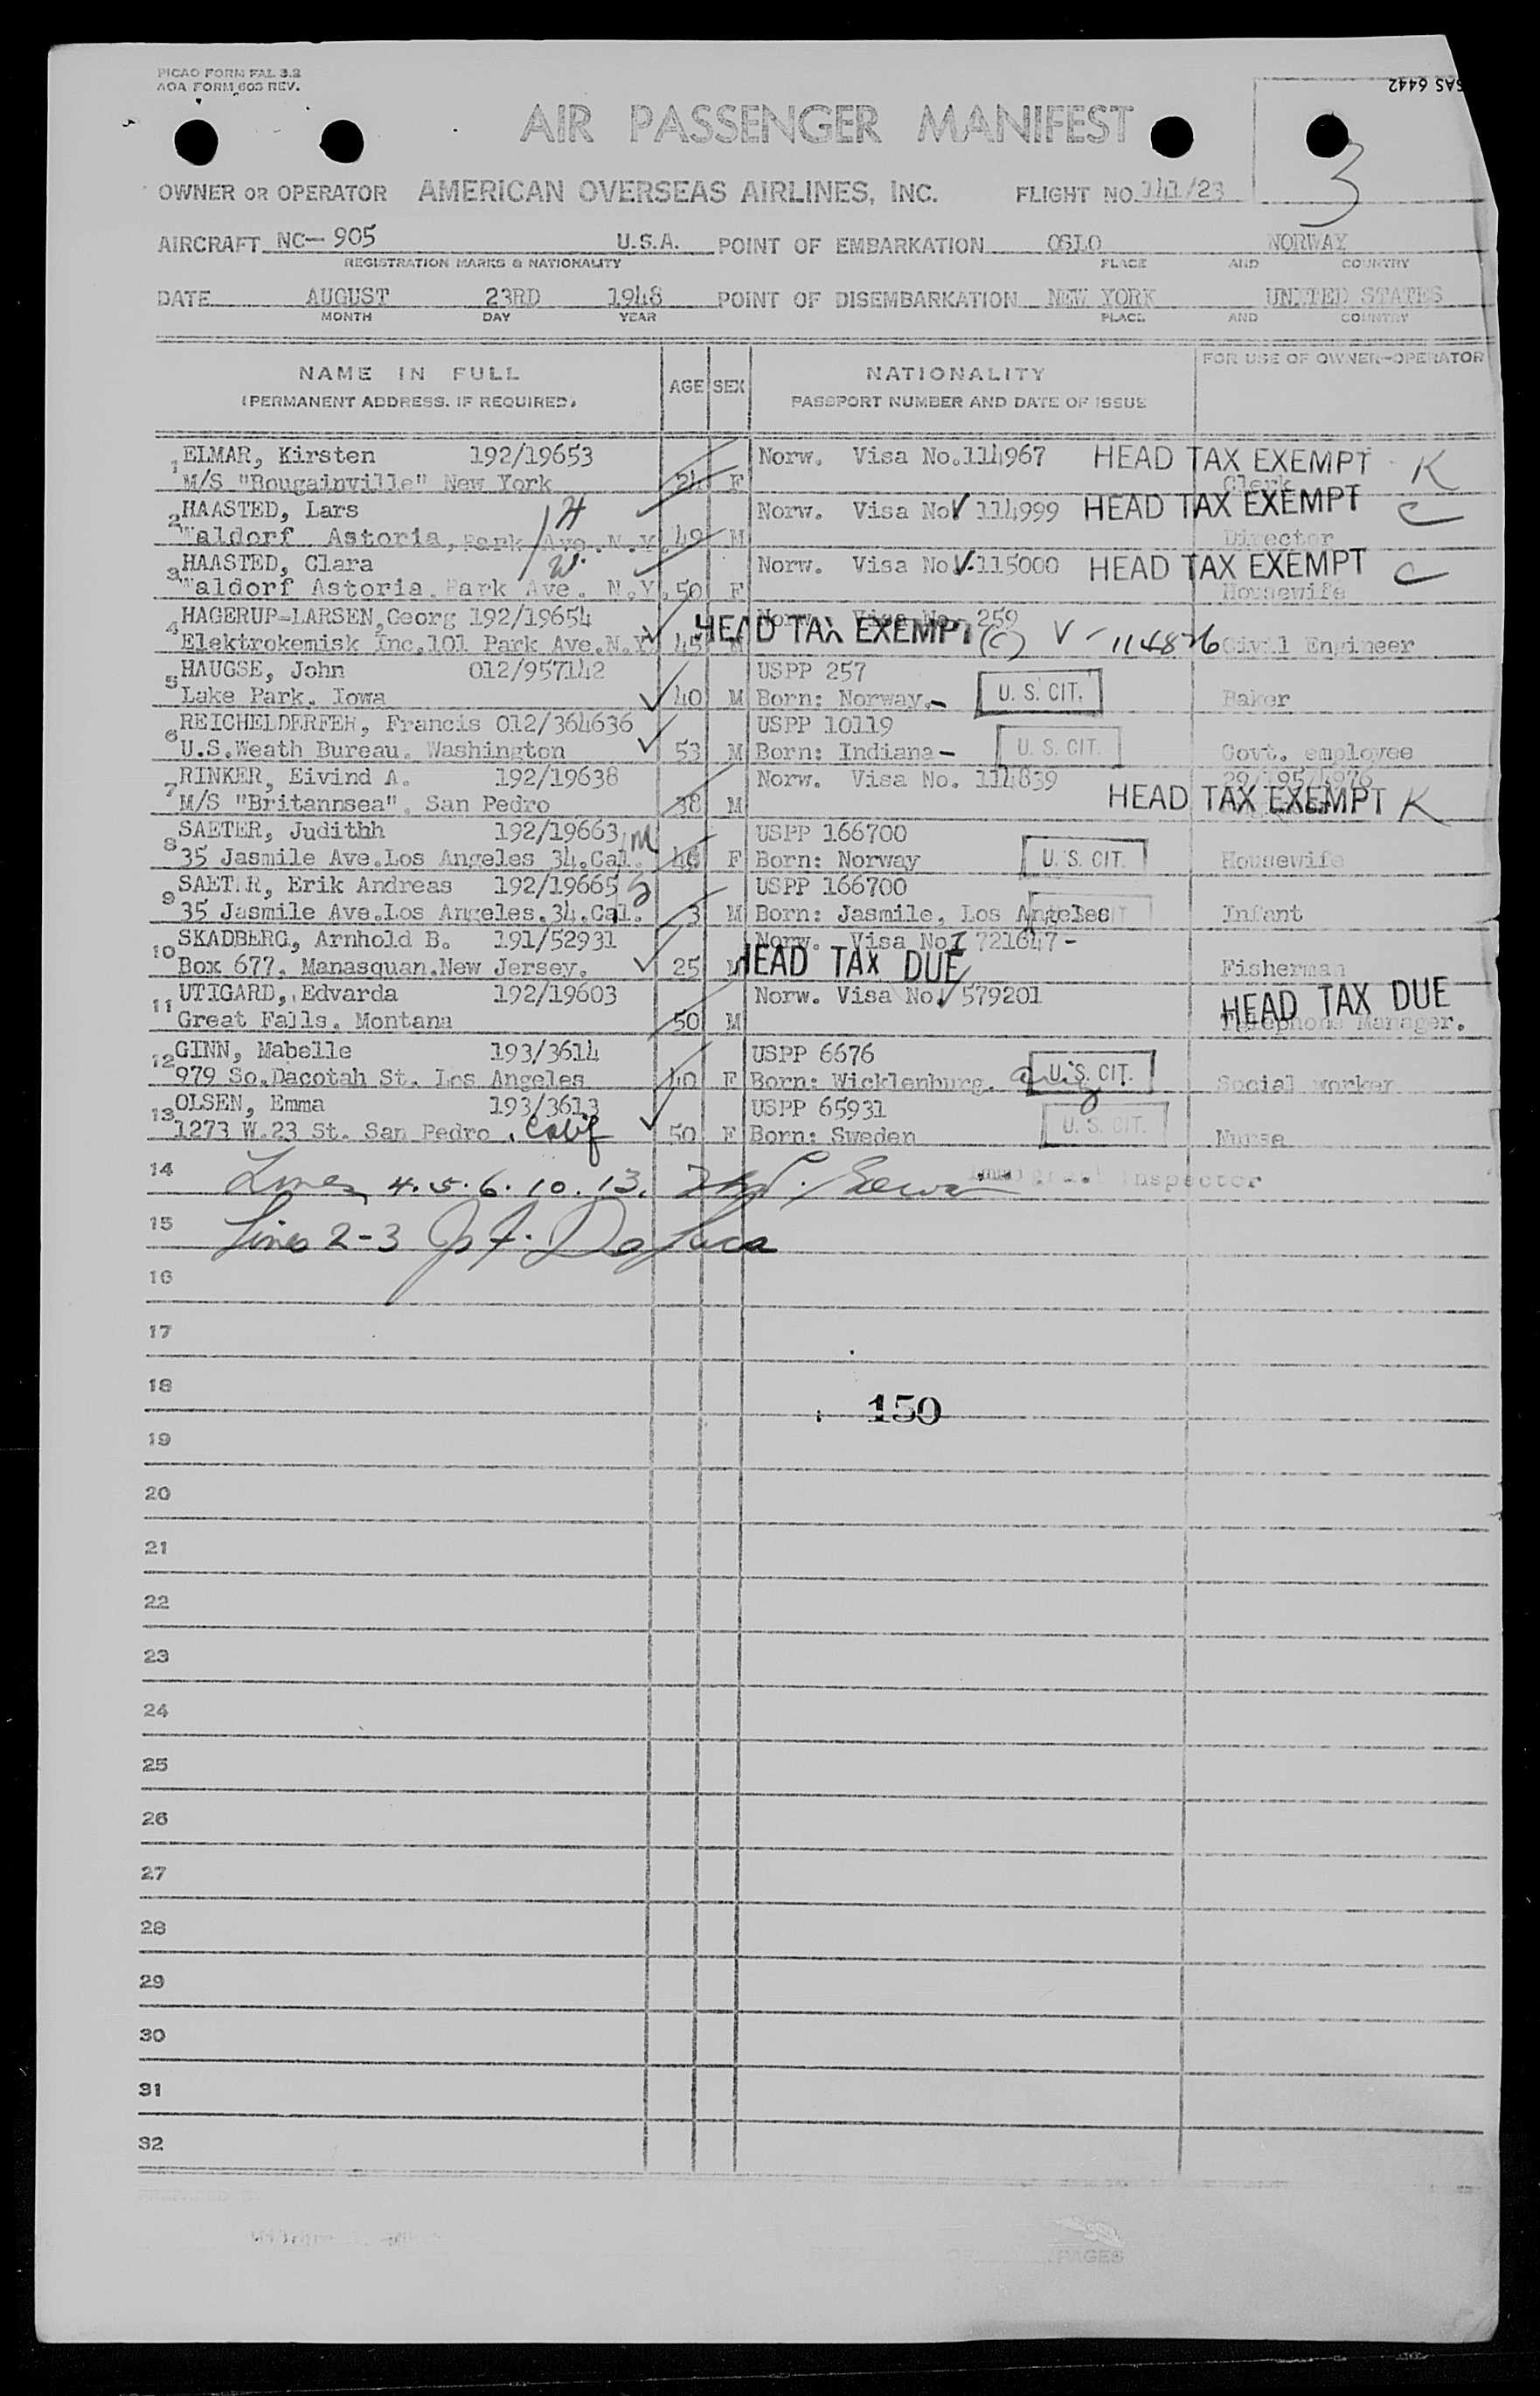 PICAO FORM FAL 3.2
AOA FORM 603 REV.
SAS 6442
AIR PASSENGER MANIFEST
3
OWNER OR OPERATOR AMERICAN OVERSEAS AIRLINES, INC. FLIGHT NO. 141/23
AIRCRAFT NC-905 U.S.A. POINT OF EMBARKATION OSLO NORWAY
REGISTRATION MARKS & NATIONALITY PLACE AND COUNTRY
DATE AUGUST 23RD 1948 POINT OF DISEMBARKATION NEW YORK UNITED STATES
MONTH DAY YEAR PLACE AND COUNTRY
NAME IN FULL AGE SEX NATIONALITY FOR USE OF OWNER-OPERATOR
(PERMANENT ADDRESS, IF REQUIRED) PASSPORT NUMBER AND DATE OF ISSUE
1 ELMAR, Kirsten 192/19653 Norw. Visa No.114967 HEAD TAX EXEMPT K
M/S "Bougainville" New York 24 F Clerk
2 HAASTED, Lars H Norw. Visa No V 114999 HEAD TAX EXEMPT C
Waldorf Astoria, Park Ave. N.Y. 49 M Director
3 HAASTED, Clara W. Norw. Visa No V-115000 HEAD TAX EXEMPT C
Waldorf Astoria, Park Ave. N.Y. 50 F Housewife
4 HAGERUP-LARSEN, Georg 192/19654 Norw. Visa No. 259
Elektrokemisk Inc.101 Park Ave.N.Y. 45 M HEAD TAX EXEMPT (C) V-114876 Civil Engineer
5 HAUGSE, John 012/957142 USPP 257
Lake Park, Iowa 40 M Born: Norway.- U. S. CIT. Baker
6 REICHELDERFER, Francis 012/364636 USPP 10119
U.S.Weath Bureau. Washington 53 M Born: Indiana- U. S. CIT. Govt. employee
7 RINKER, Eivind A. 192/19638 Norw. Visa No. 114839
M/S "Britannsea". San Pedro 38 M HEAD TAX EXEMPT K
8 SAETER, Judithh 192/19663 M USPP 166700
35 Jasmile Ave.Los Angeles 34.Cal. 46 F Born: Norway U. S. CIT. Housewife
9 SAETER, Erik Andreas 192/19665 S USPP 166700
35 Jasmile Ave.Los Angeles.34.Cal. 3 M Born: Jasmile, Los Angeles Infant
10 SKADBERG, Arnhold B. 191/52931 Norw. Visa No I 721647-
Box 677. Manasquan.New Jersey. 25 M HEAD TAX DUE Fisherman
11 UTIGARD, Edvarda 192/19603 Norw. Visa No. V 579201 HEAD TAX DUE
Great Falls. Montana 50 M Telephone Manager.
12 GINN, Mabelle 193/3614 USPP 6676
979 So.Dacotah St. Los Angeles 40 F Born: Wicklenburg. Ariz U. S. CIT. Social worker
13 OLSEN, Emma 193/3613 USPP 65931
1273 W.23 St. San Pedro, Calif 50 F Born: Sweden U. S. CIT. Nurse
14 Lines 4. 5. 6. 10. 13. Immigrant Inspector
15 Lines 2-3
16
17
18
150
19
20
21
22
23
24
25
26
27
28
29
30
31
32
PAGES